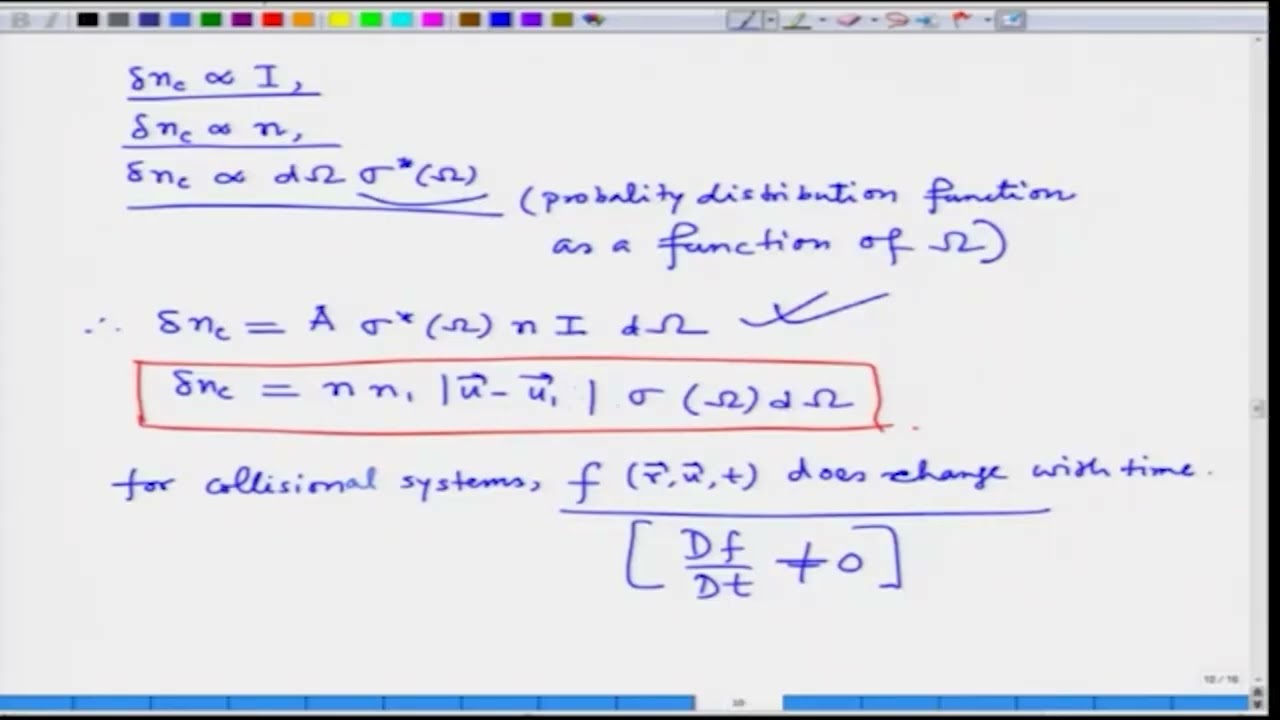 δn_c ∝ I,
δn_c ∝ n,
δn_c ∝ dΩ σ*(Ω) (probality distribution function
as a function of Ω)
∴ δn_c = A σ*(Ω) n I dΩ
δn_c = n n₁ |u⃗ - u⃗₁| σ (Ω) dΩ
for collisional systems, f (r⃗, u⃗, t) does change with time.
[Df/Dt ≠ 0]